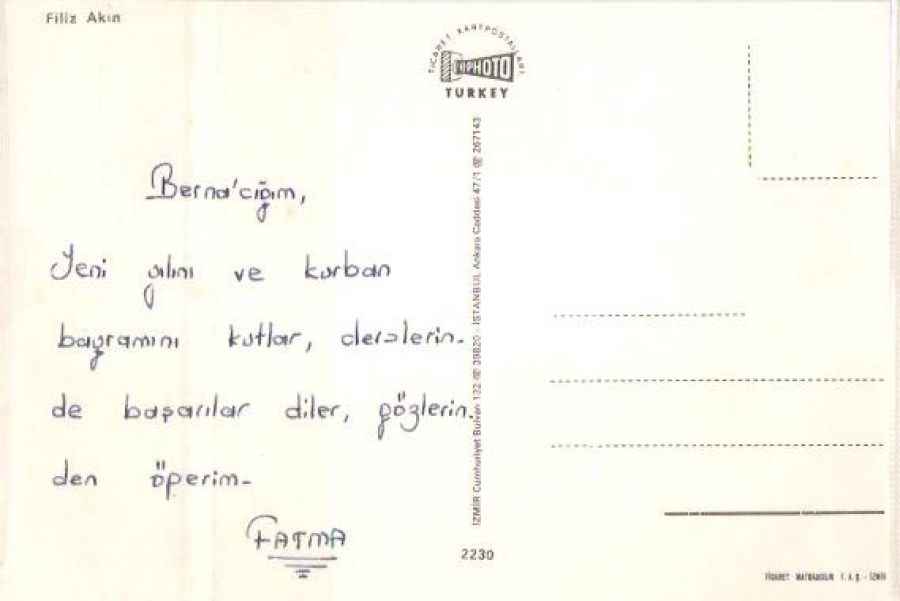 Filiz Akın
TİCARET KARTPOSTALLARI
TURKEY
Berna'cığım,
Yeni yılını ve kurban
bayramını kutlar, derslerin-
de başarılar diler, gözlerin-
den öperim-
FATMA
İZMİR Cumhuriyet Bulvarı 132 ☎ 39820 - İSTANBUL Ankara Caddesi 47/1 ☎ 267143
2230
TİCARET MATBAACILIK T.A.Ş. - İZMİR